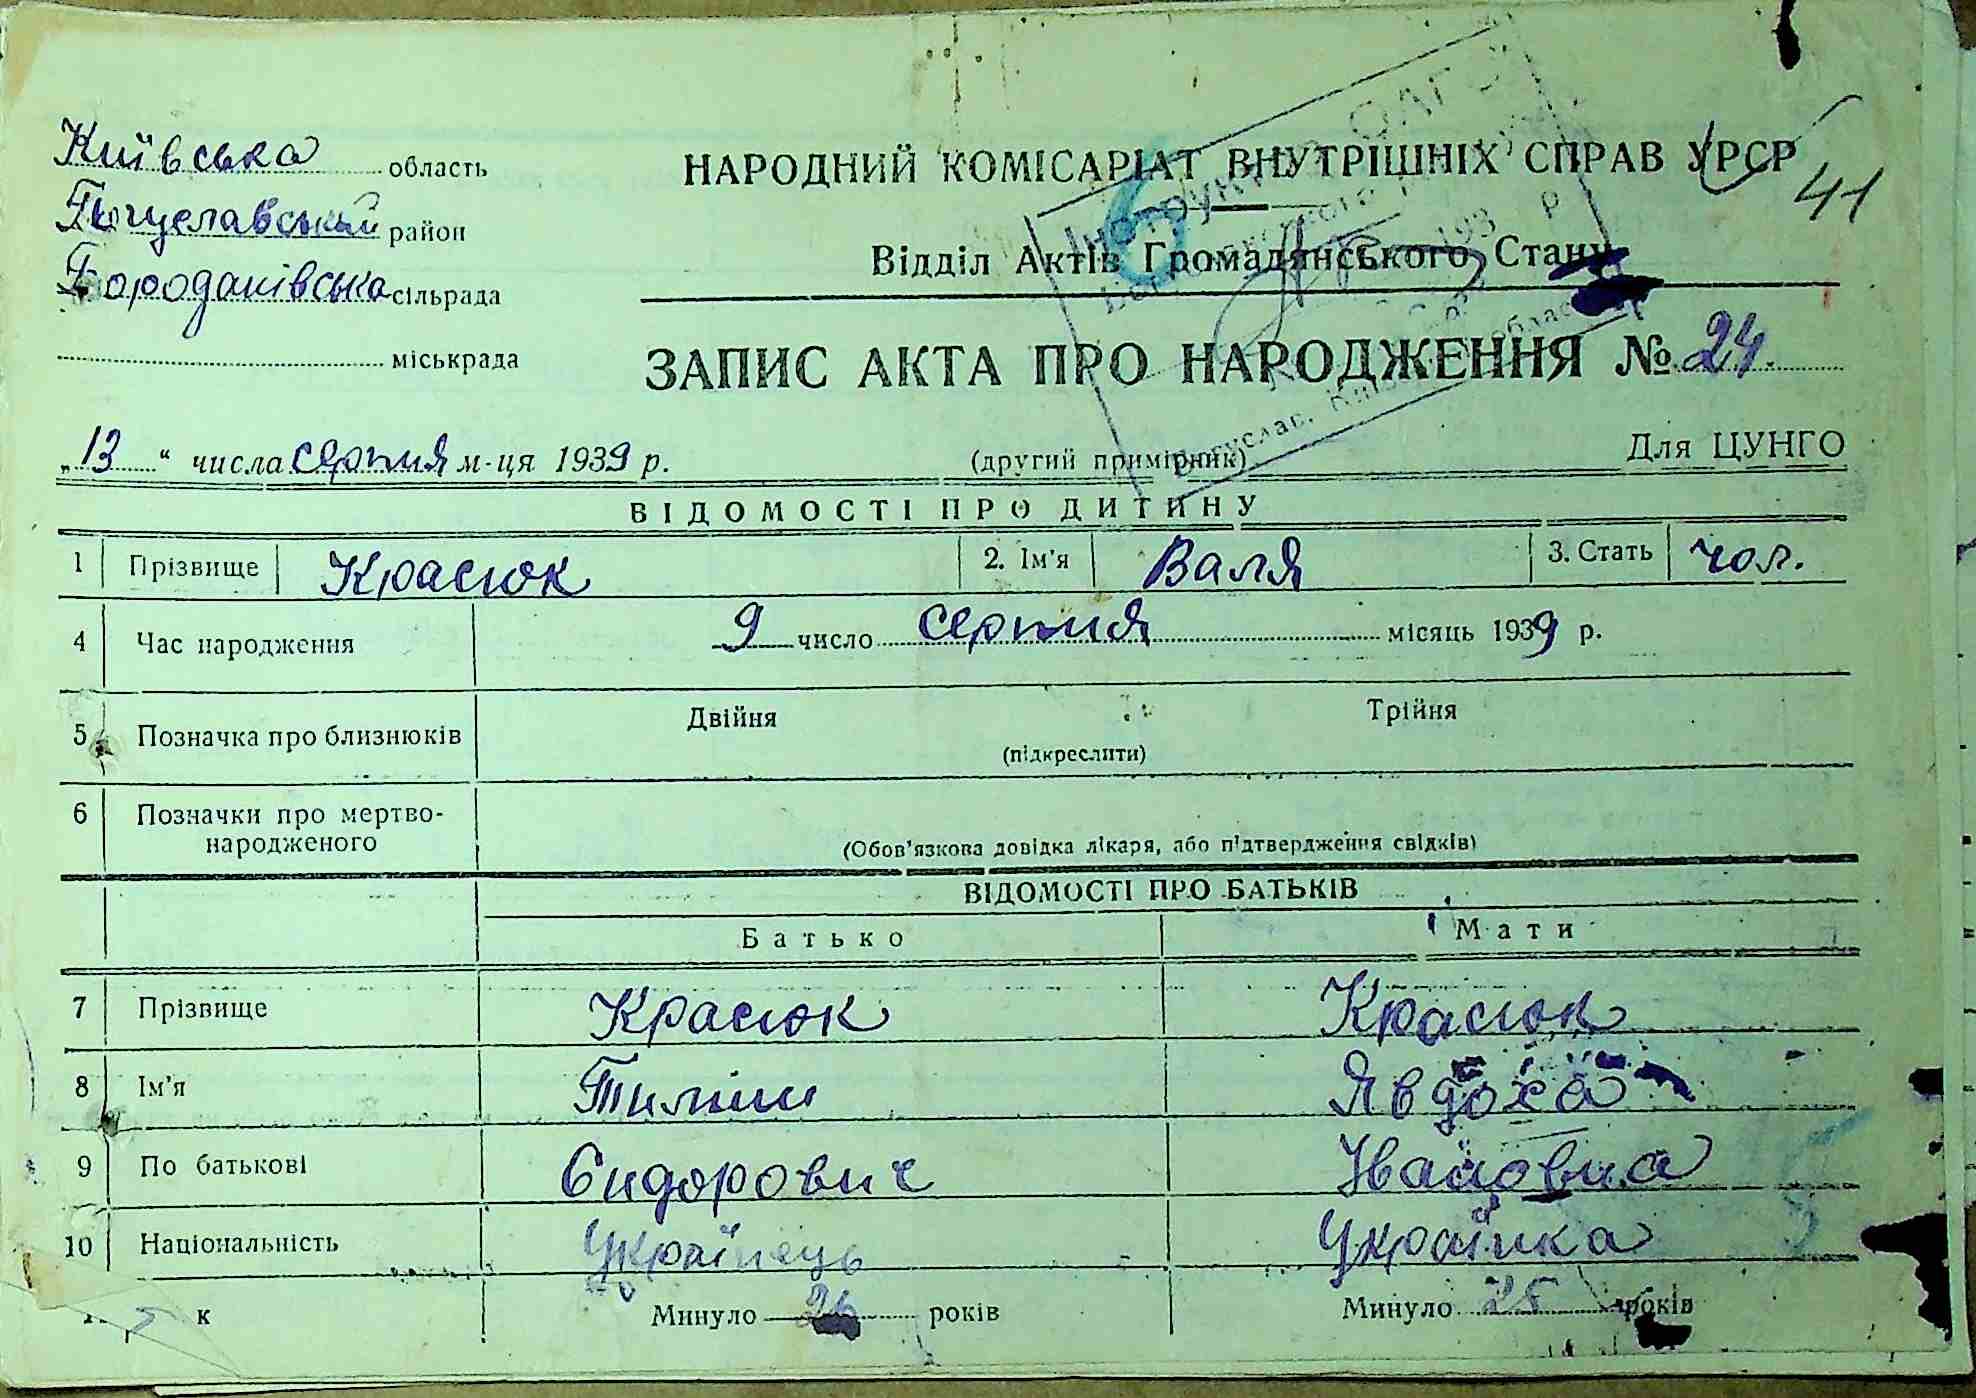 Київська область
НАРОДНИЙ КОМІСАРІАТ ВНУТРІШНІХ СПРАВ УРСР
41
Богуславський район
Відділ Актів Громадянського Стану
Бородаківська сільрада
міськрада
ЗАПИС АКТА ПРО НАРОДЖЕННЯ № 24.
„13“ числа серпня м-ця 1939 р.
(другий примірник)
Для ЦУНГО
ВІДОМОСТІ ПРО ДИТИНУ
1 Прізвище Красюк 2. Ім'я Валя 3. Стать чол.
4 Час народження 9 число серпня місяць 1939 р.
5 Позначка про близнюків Двійня Трійня
(підкреслити)
6 Позначки про мертво-
народженого
(Обов'язкова довідка лікаря, або підтвердження свідків)
ВІДОМОСТІ ПРО БАТЬКІВ
Батько Мати
7 Прізвище Красюк Красюк
8 Ім'я Явдоха
9 По батькові Сидорович Ивановна
10 Національність Українець Українка
к Минуло років Минуло 25 років